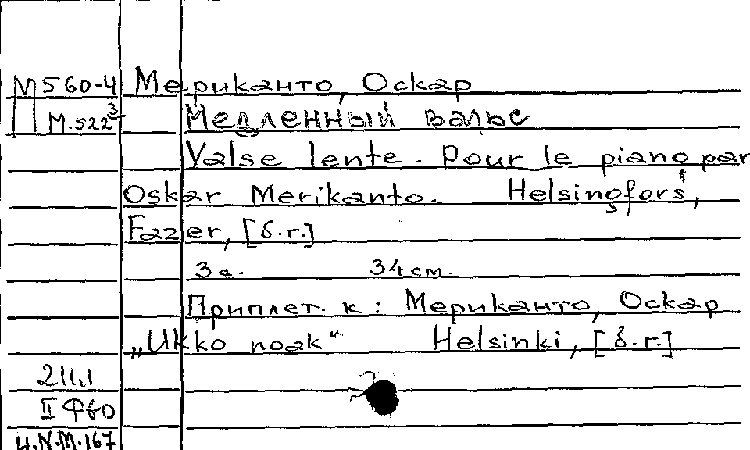 М 560-4 Мериканто, Оскар
М.522³ Медленный вальс
Valse lente. Pour le piano par
Oskar Merikanto. Helsingfors,
Fazer, [б.г.]
3 с. 34 см.
Приплет. к: Мериканто, Оскар
„Ukko noak“ Helsinki, [б.г.]
211.1
II Ф60
И.N.М.167